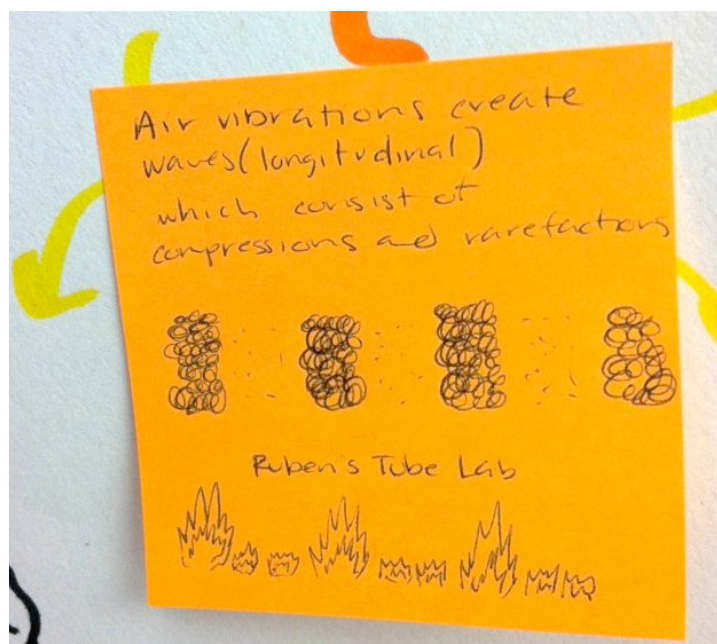 Air vibrations create
waves(longitudinal)
which consist of
compressions and rarefactions
Ruben's Tube Lab